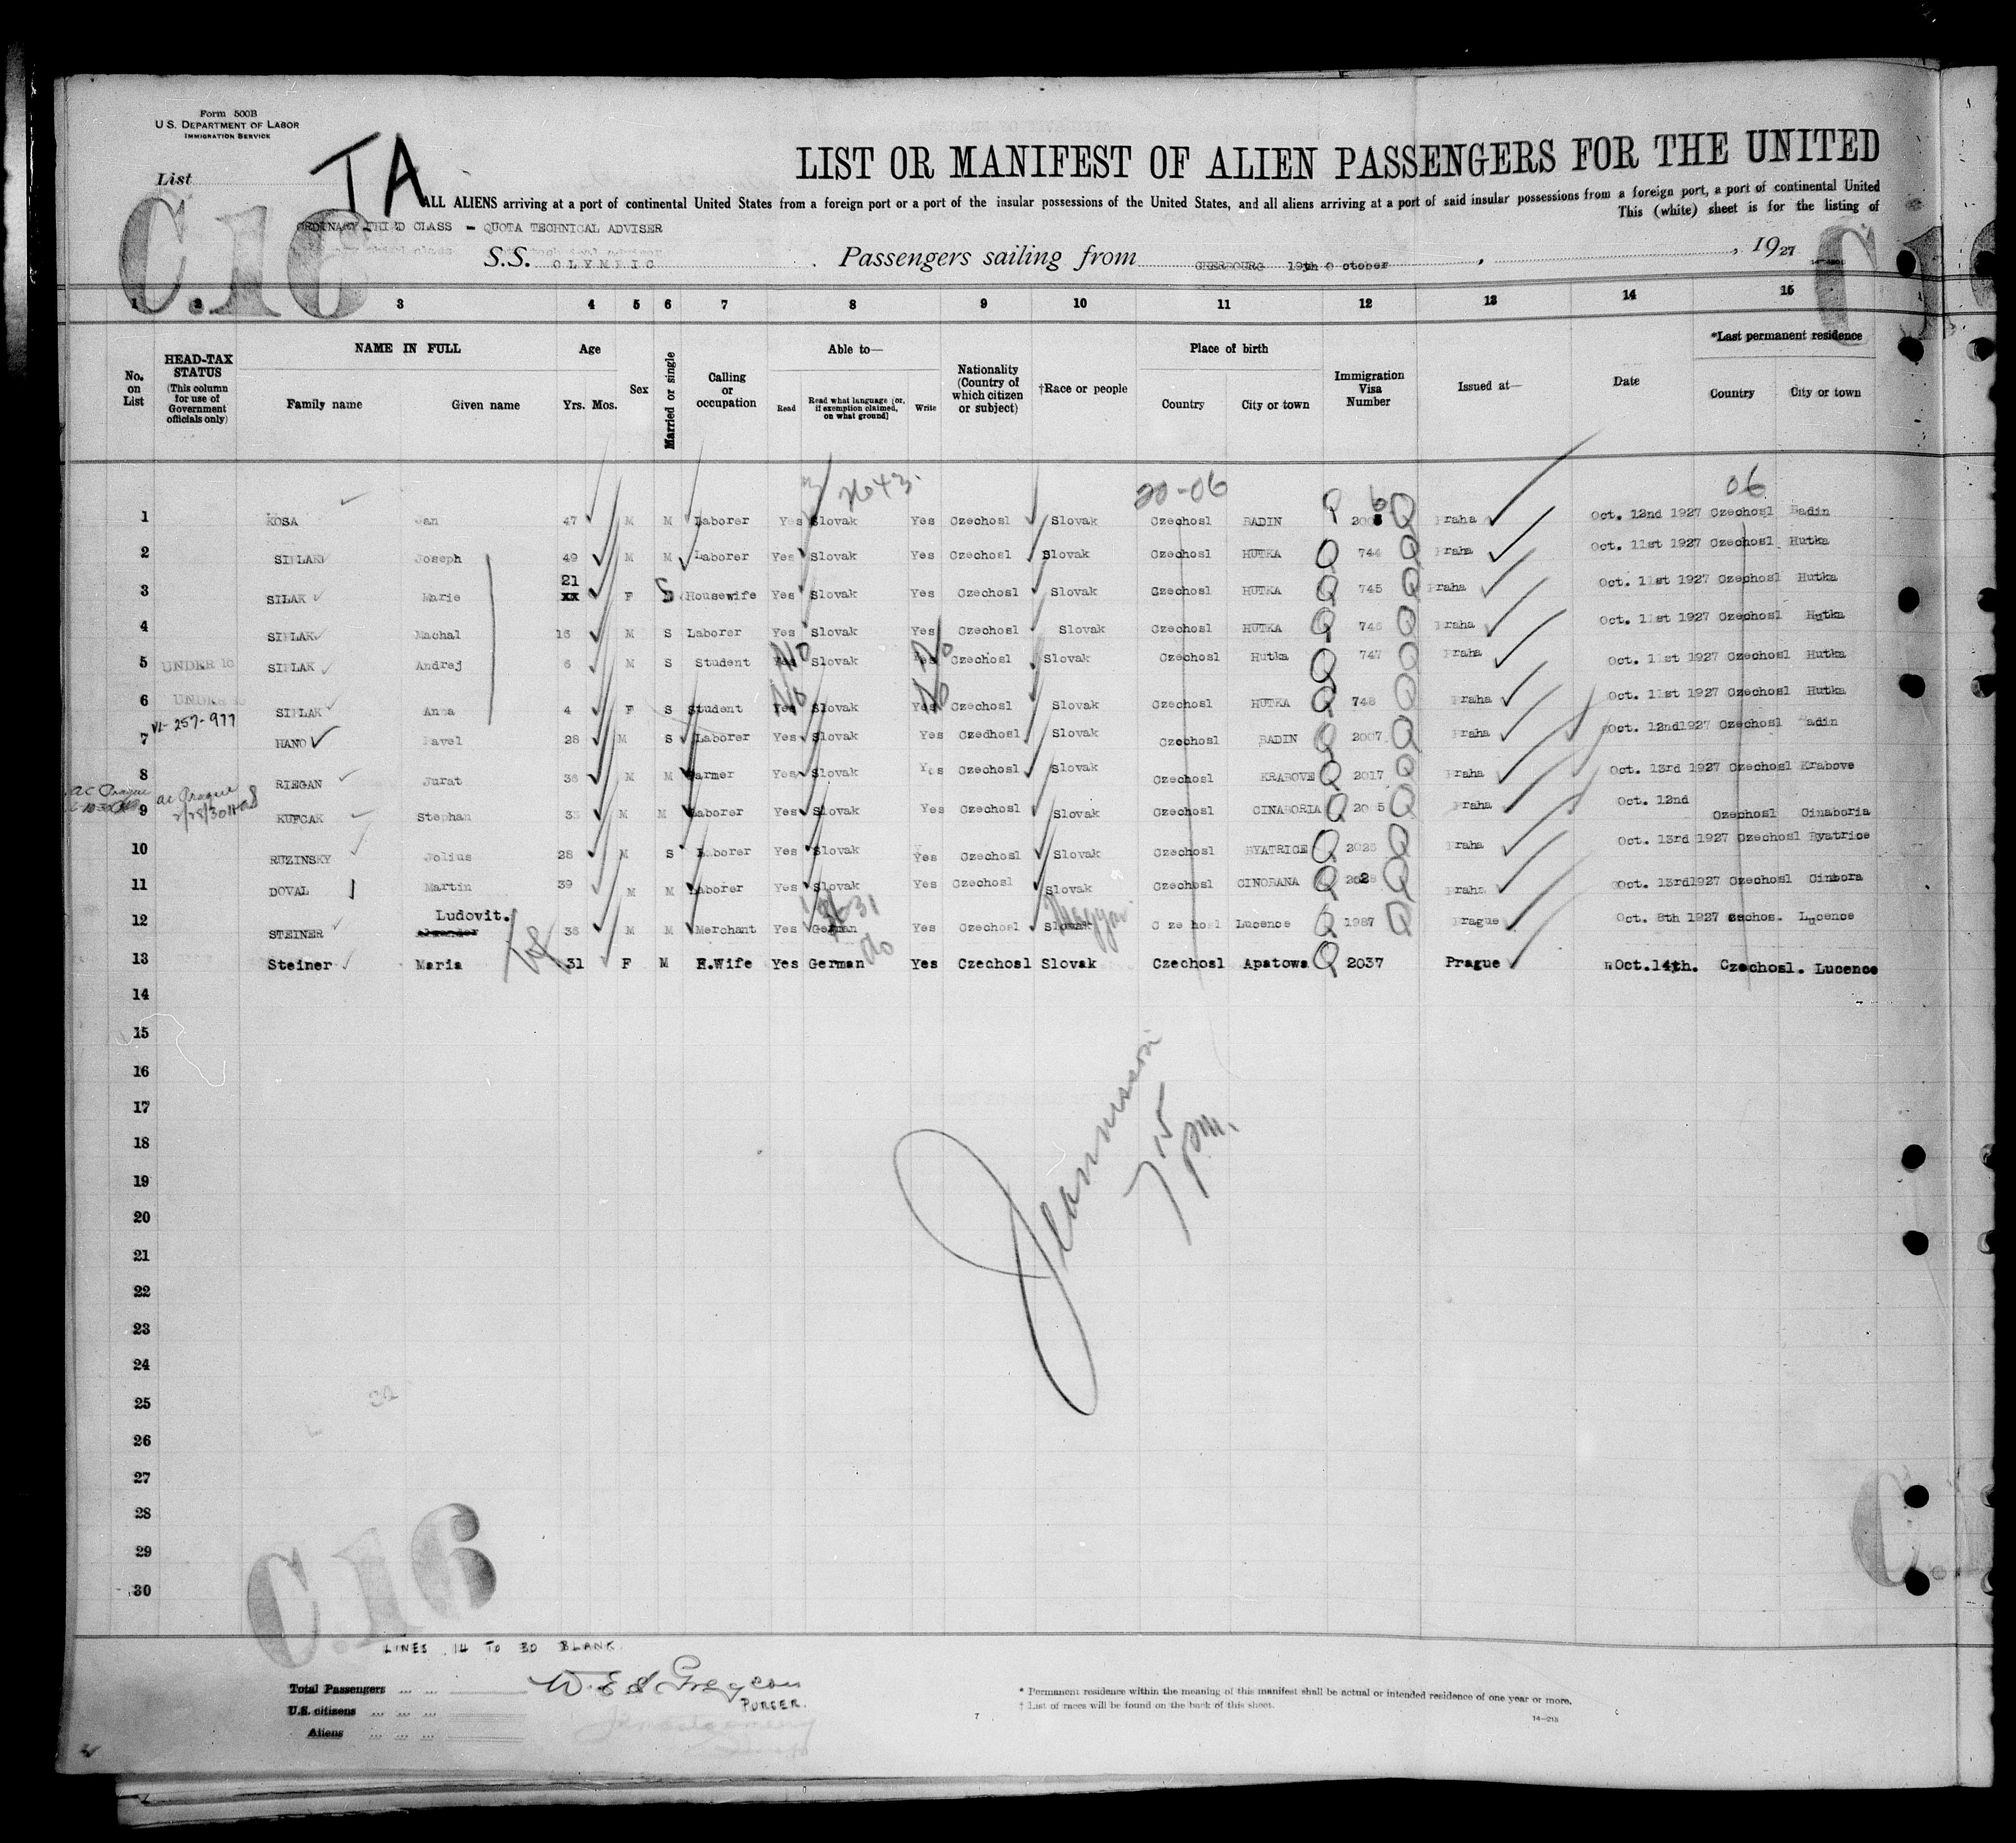 Form 500B
U.S. DEPARTMENT OF LABOR
IMMIGRATION SERVICE
List
TA
LIST OR MANIFEST OF ALIEN PASSENGERS FOR THE UNITED
ALL ALIENS arriving at a port of continental United States from a foreign port or a port of the insular possessions of the United States, and all aliens arriving at a port of said insular possessions from a foreign port, a port of continental United
This (white) sheet is for the listing of
C.16
ORDINARY THIRD CLASS - QUOTA TECHNICAL ADVISER
S.S. OLYMPIC Passengers sailing from CHERBOURG 19th October , , 1927
1 2 3 4 5 6 7 8 9 10 11 12 13 14 15
No. on List
HEAD-TAX STATUS (This column for use of Government officials only)
NAME IN FULL
Family name Given name
Age
Yrs. Mos.
Sex
Married or single
Calling or occupation
Able to—
Read
Read what language (or, if exemption claimed, on what ground)
Write
Nationality (Country of which citizen or subject)
†Race or people
Place of birth
Country City or town
Immigration Visa Number
Issued at—
Date
*Last permanent residence
Country City or town
20-06 06
1 KOSA Jan 47 M M Laborer Yes Slovak Yes Czechosl Slovak Czechosl BADIN Praha Oct. 12nd 1927 Czechosl Badin
2 Joseph 49 M M Laborer Yes Slovak Yes Czechosl Slovak Czechosl HUTKA 744 Praha Oct. 11st 1927 Czechosl Hutka
3 SILAK Marie 21 xx F S Housewife Yes Slovak Yes Czechosl Slovak Czechosl HUTKA 745 Praha Oct. 11st 1927 Czechosl Hutka
4 Machal 16 M S Laborer Yes Slovak Yes Czechosl Slovak Czechosl HUTKA 746 Praha Oct. 11st 1927 Czechosl Hutka
5 UNDER 16 Andrej 6 M S Student No Slovak No Czechosl Slovak Czechosl Hutka 747 Praha Oct. 11st 1927 Czechosl Hutka
6 UNDER 16 Anna 4 F S Student No Slovak No Czechosl Slovak Czechosl HUTKA 748 Praha Oct. 11st 1927 Czechosl Hutka
VI-257-977
7 HANO Pavel 28 M S Laborer Yes Slovak Yes Czedhosl Slovak Czechosl BADIN 2007 Praha Oct. 12nd1927 Czechosl Badin
8 RIEGAN Jurat 36 M M Farmer Yes Slovak Yes Czechosl Slovak Czechosl KRABOVE 2017 Praha Oct. 13rd 1927 Czechosl Krabove
9 KUFCAK Stephan M M Laborer Yes Slovak Yes Czechosl Slovak Czechosl CINABORIA Praha Oct. 12nd Czechosl Cinaboria
10 RUZINSKY Jolius 28 M S Laborer Yes Slovak Yes Czechosl Slovak Czechosl BYATRICE Praha Oct. 13rd 1927 Czechosl Byatrice
11 DOVAL Martin 39 M M Laborer Yes Slovak Yes Czechosl Slovak Czechosl CINORANA Praha Oct. 13rd1927 Czechosl Cinbora
12 STEINER Ludovit. 36 M M Merchant Yes German Yes Czechosl Slovak Magyar Czechosl Lucence 1987 Prague Oct. 8th 1927 Lucence
13 Steiner Maria 31 F M H.Wife Yes German Yes Czechosl Slovak Czechosl Apatowa 2037 Prague Oct.14th. Czechosl. Lucence
14
15
16
17
18
19
20
21
22
23
24
25
26
27
28
29
30
7 15 pm.
C.16
LINES 14 TO 30 BLANK
Total Passengers
U.S. citizens
Aliens
PURSER.
* Permanent residence within the meaning of this manifest shall be actual or intended residence of one year or more.
† List of races will be found on the back of this sheet.
7
14-213